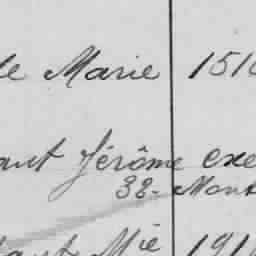 le Marie 151
aut Jérôme exe
32- Mont
Mie 191